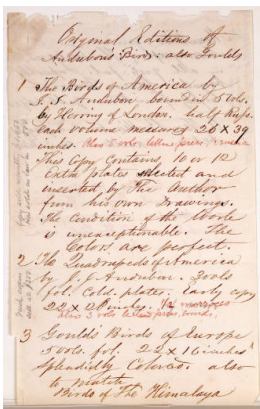 Original Editions of
Audubon's Birds. also Gould's
1 The Birds of America by
J. J. Audubon bound in 5 Vols.
by Herring of London. half Russ.
Each volume measures 26 X 39
inches. Also 5 vols. letter press,
This Copy Contains, 10 or 12
Extra plates selected and
inserted by The Author
from his own Drawings.
The Condition of the Work
is unexceptionable. The
Colors are perfect.
2 The Quadrupeds of America
by J. J. Audubon. 2 vols
fol. Cold. plates. Early copy
22 X 28 inches. 1/2 morocco
also 3 vols letter press, bound.
3 Gould's Birds of Europe
5 vols. fol. 22 X 16 inches
Splendidly Colored. also
to match
Birds of The Himalaya